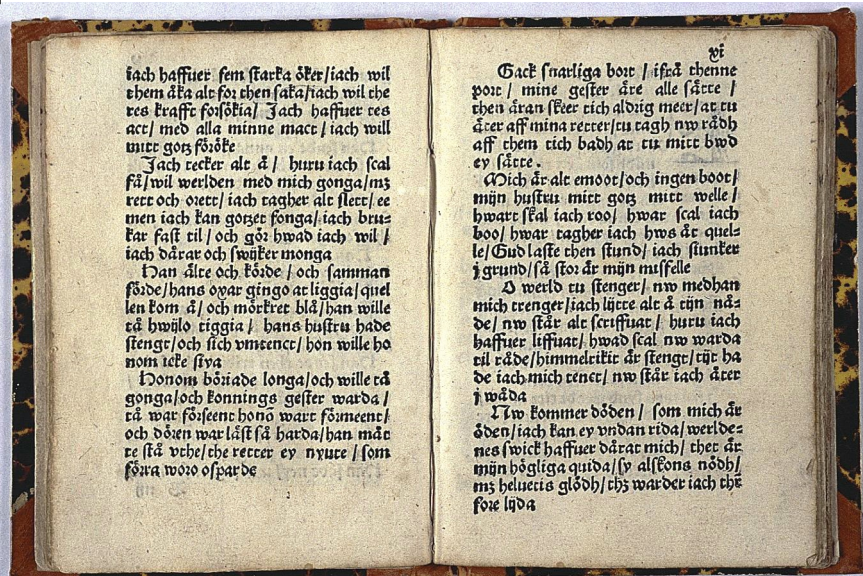 iach haffuer fem starka öker/iach wil
them åka alt for then saka/iach wil the
res krafft forsökia/ Jach haffuer tes
act/ med alla minne mact/ iach will
mitt gotz föröke
Jach tecker alt å/ huru iach scal
få/wil werlden med mich gonga/mz
rett och orett/ iach tagher alt slett/ ee
men iach kan gotzet fonga/ iach bru-
kar fast til/ och gör hwad iach wil/
iach dårar och swijker monga
Han älte och körde/ och samman
förde/hans oxar gingo at liggia/quel
len kom å/ och mörkret blå/han wille
tå hwijlo tiggia/ hans hustru hade
stengt/och sich vmtenct/hon wille ho
nom icke stya
Honom böriade longa/och wille tå
gonga/och konnings gester warda/
tå war förseent honō wart förmeent/
och dören war låst så harda/han mat
te stå vthe/the retter ey nyute/ som
förra woro osparde
xi
Gack snarliga bort/ ifrå thenne
port/ mine gester äre alle sätte/
then äran skeer tich aldrig meer/at tu
äter aff mina retter/tu tagh nw rådh
aff them tich badh at tu mitt bwd
ey sätte.
Mich är alt emoot/och ingen boot/
mijn hustru mitt gotz mitt welle/
hwart skal iach roo/ hwar scal iach
boo/ hwar tagher iach hws åt quel-
le/Gud laste then stund/ iach stunker
j grund/så stor är mijn misfelle
O werld tu stenger/ nw medhan
mich trenger/iach lijtte alt å tijn nå-
de/ nw står alt scriffuat/ huru iach
haffuer liffuat/ hwad scal nw warda
til råde/himmelrikit är stengt/tijt ha
de iach mich tenct/ nw står iach äter
j wåda
Nw kommer döden/ som mich är
öden/iach kan ey vndan rida/ werlde-
nes swick haffuer dårat mich/ thet är
mijn högliga quida/sy alskons nödh/
mz heluetis glödh/thz warder iach thr
fore lijda